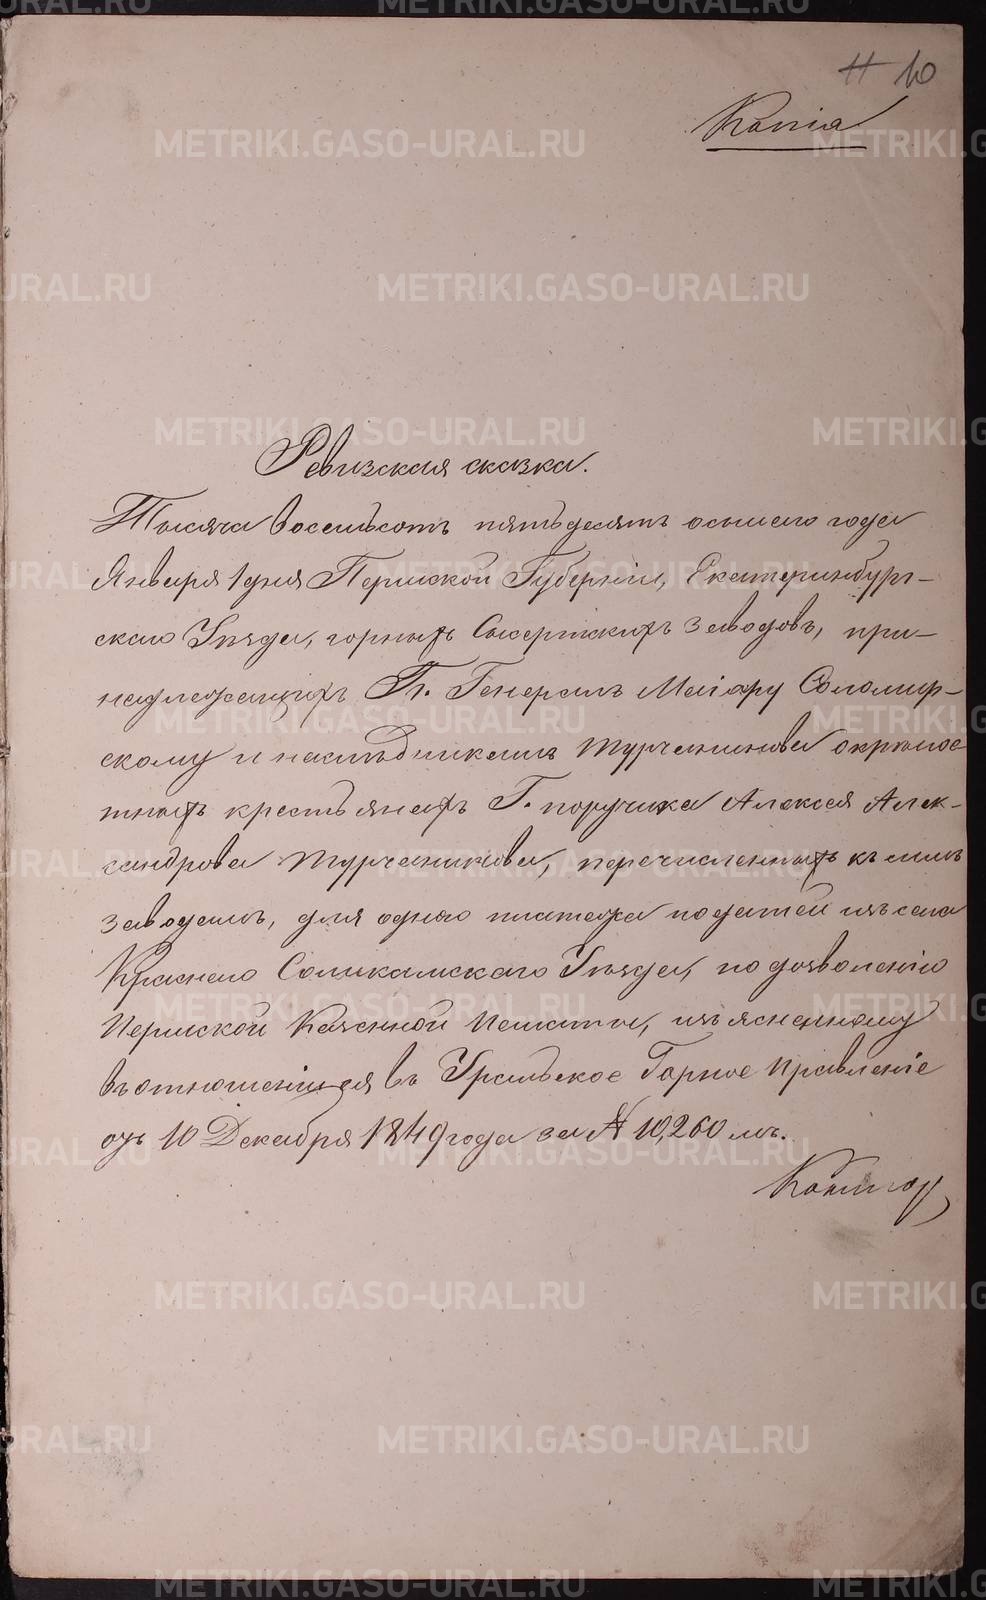 10
Копія
Ревизская сказка.
Тысяча восемьсотъ пятьдесятъ осьмаго года
Января 1 дня Пермской Губерніи, Екатеринбург-
скаго Уѣзда, горныхъ Сысертскихъ заводовъ, при-
надлежащихъ Гг. Генералъ Маіору Соломир-
скому и наслѣдникамъ Турчанинова о крѣпос-
тныхъ крестьянахъ Г. поручика Алексея Алек-
сандрова Турчанинова, перечисленныхъ къ симъ
заводамъ, для одного платежа податей изъ села
Краснаго Соликамскаго Уѣзда, по дозволенію
Пермской Казенной Палаты, изъясненному
въ отношеніи ея въ Уральское Горное Правленіе
отъ 10 Декабря 1849 года за № 10,260 мъ.
METRIKI.GASO-URAL.RU